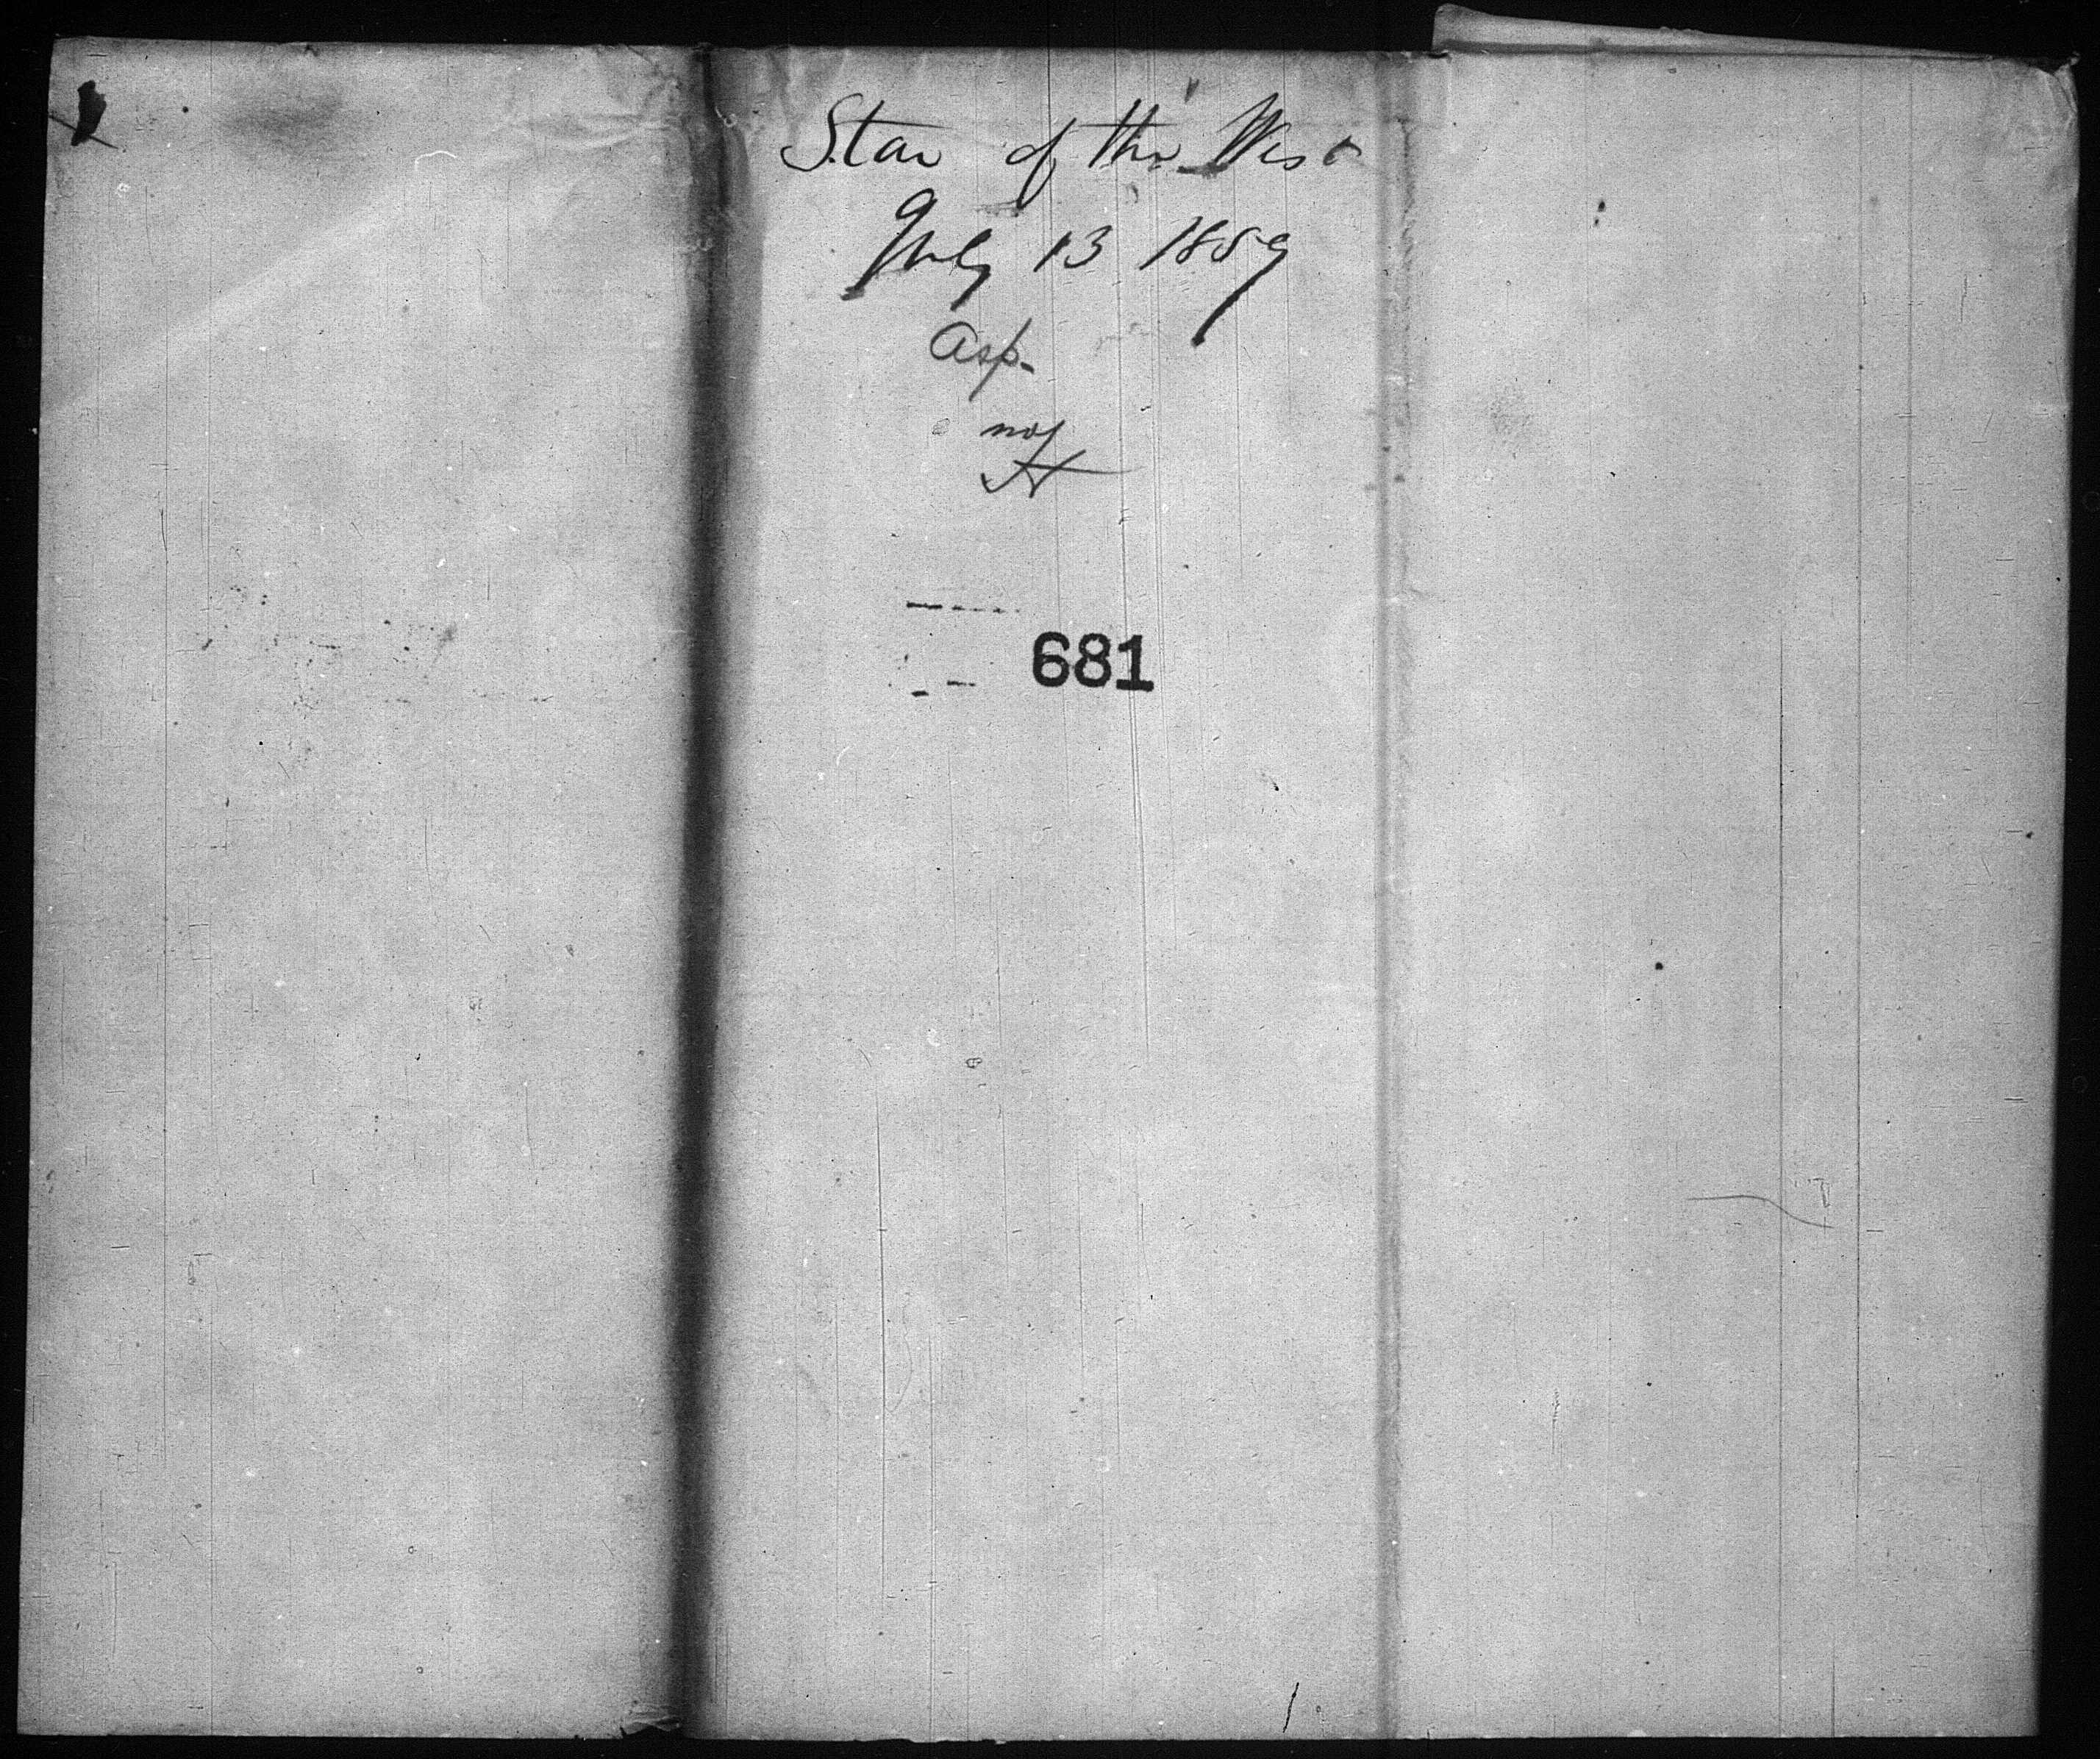 Star of the West
July 13 1859
Asp.
681